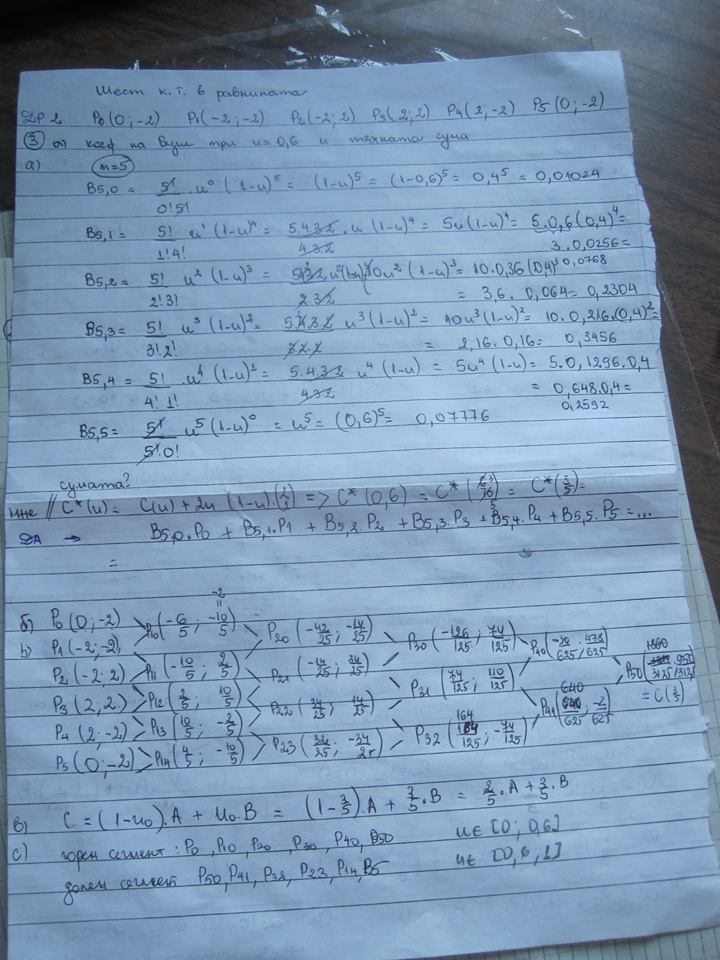 Шест к.т. в равнината
ДР 2 P0(0;-2) P1(-2;-2) P2(-2;2) P3(2;2) P4(2,-2) P5(0;-2)
③ а) коеф на Безие при u=0,6 и тяхната сума
а) n=5
B5,0 = 5!/0!5! u⁰(1-u)⁵ = (1-u)⁵ = (1-0,6)⁵ = 0,4⁵ = 0,01024
B5,1 = 5!/1!4! u¹(1-u)⁴ = 5.4.3.2/4.3.2 . u(1-u)⁴ = 5u(1-u)⁴ = 5.0,6(0,4)⁴ =
3.0,0256 =
0,0768
B5,2 = 5!/2!3! u²(1-u)³ = 5.4.3.2/2.3.2 u²(1-u)³ 10u²(1-u)³ = 10.0,36(0,4)³
= 3,6. 0,064 = 0,2304
B5,3 = 5!/3!2! u³(1-u)² = 5.4.3.2/3.2.2 u³(1-u)² = 10u³(1-u)² = 10.0,216.(0,4)² =
= 2,16.0,16 = 0,3456
B5,4 = 5!/4!1! u⁴(1-u)¹ = 5.4.3.2/4.3.2 u⁴(1-u) = 5u⁴(1-u) = 5.0,1296.0,4
= 0,648.0,4 =
0,2592
B5,5 = 5!/5!0! u⁵(1-u)⁰ = u⁵ = (0,6)⁵ = 0,07776
сумата?
C*(u) = C(u)+2u(1-u). => C*(0,6) = C*(6/10) = C*(3/5) =
ДА → B5,0.P0 + B5,1.P1 + B5,2.P2 + B5,3.P3 + B5,4.P4 + B5,5.P5 = ...
=
б) P0(0;-2) P10(-6/5; -10/5) = -2 P20(-42/25; -14/25) P30(-126/125; 74/125) P50
b) P1(-2;-2) P11(-10/5; 2/5) P21(-14/25; 34/25) P31(74/125; 110/125) = C(3/5)
P2(-2;2) P12(2/5; 10/5) P22(34/25; 14/25) P32(164/125; -74/125)
P3(2,2) P13(10/5; -2/5) P23
P4(2;-2) P14(4/5; -10/5)
P5(0;-2)
в) C = (1-u0).A + u0.B = (1-3/5).A + 3/5.B = 2/5.A + 3/5.B
c) горен сегмент: P0, P10, P20, P30, P40, P50 u∈[0; 0,6]
долен сегмент P50, P41, P32, P23, P14, P5 u∈[0,6, 1]